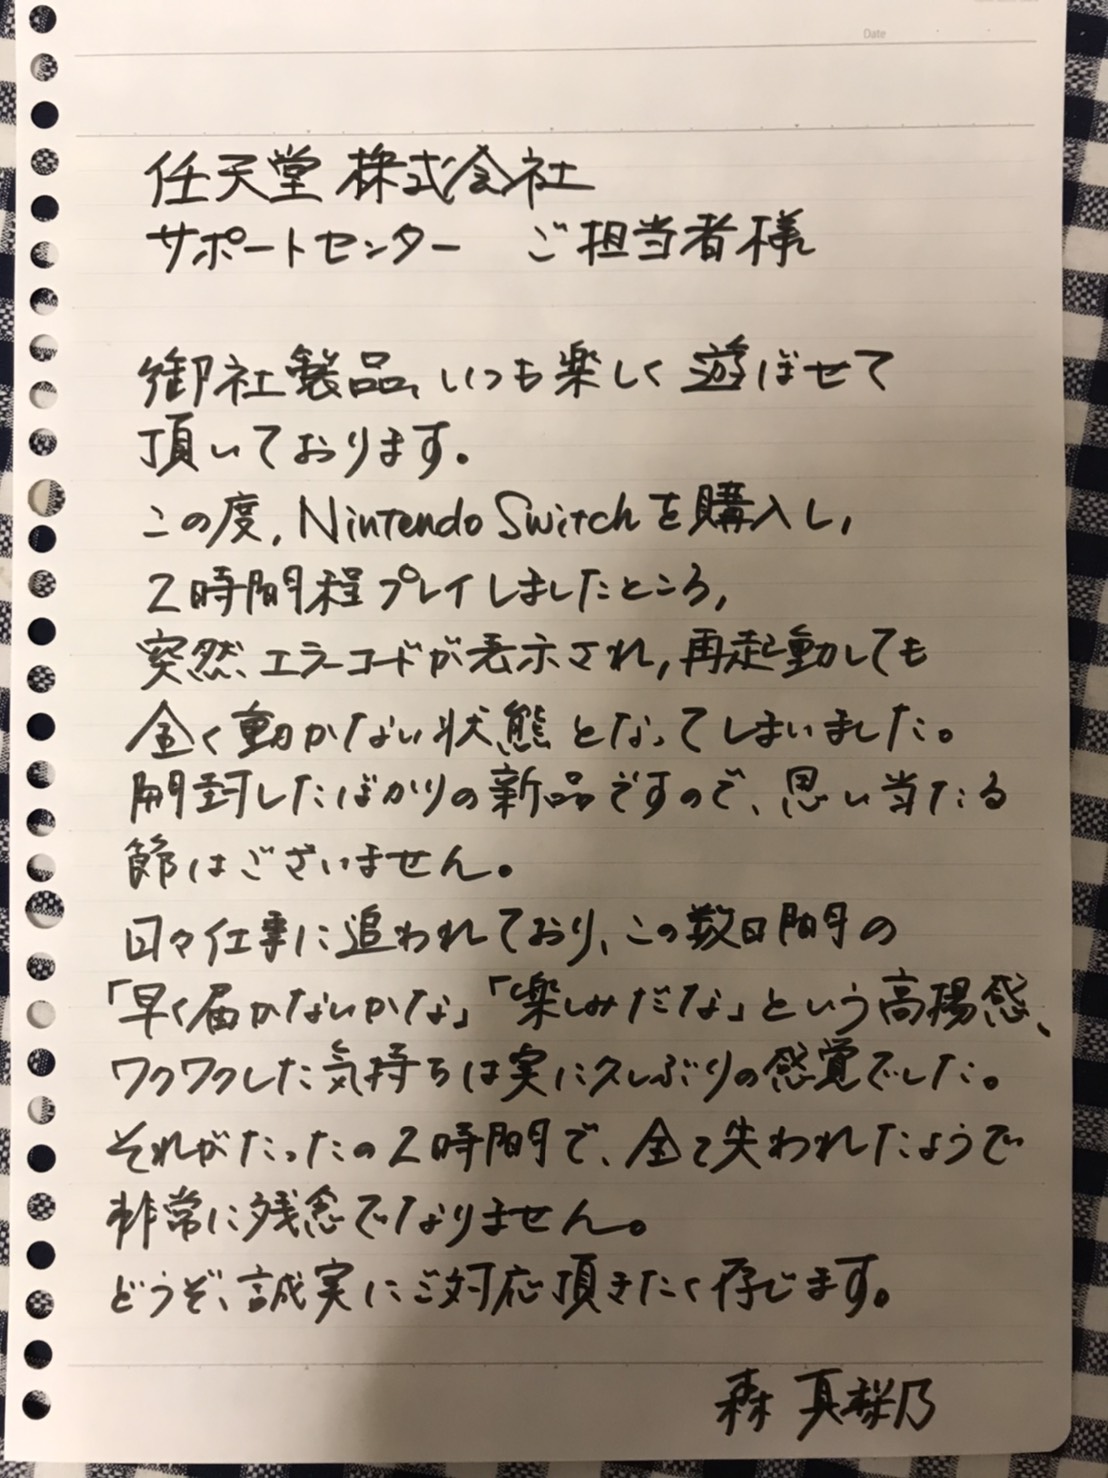 Date
任天堂 株式会社
サポートセンター ご担当者様
御社製品、いつも楽しく遊ばせて
頂いております。
この度、Nintendo Switchを購入し、
2時間程プレイしましたところ、
突然、エラーコードが表示され、再起動しても
全く動かない状態となってしまいました。
開封したばかりの新品ですので、思い当たる
節はございません。
日々仕事に追われており、この数日間の
「早く届かないかな」「楽しみだな」という高揚感、
ワクワクした気持ちは実に久しぶりの感覚でした。
それがたったの2時間で、全て失われたようで
非常に残念でなりません。
どうぞ、誠実にご対応頂きたく存じます。
森 真梨乃